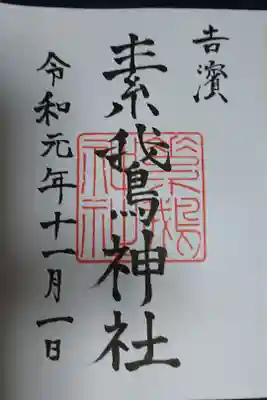 吉濱
素鵞神社
令和元年十一月一日